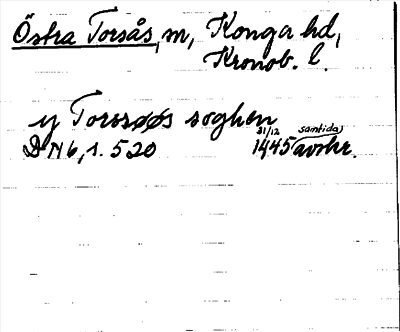 Östra Torsås, m, Konga hd,
Kronob. l.
y Torsøøs soghen
DN 6, s. 520 31/12 1445 samtida avskr.